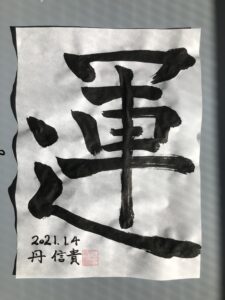 運
2021.1.4
丹 信貴